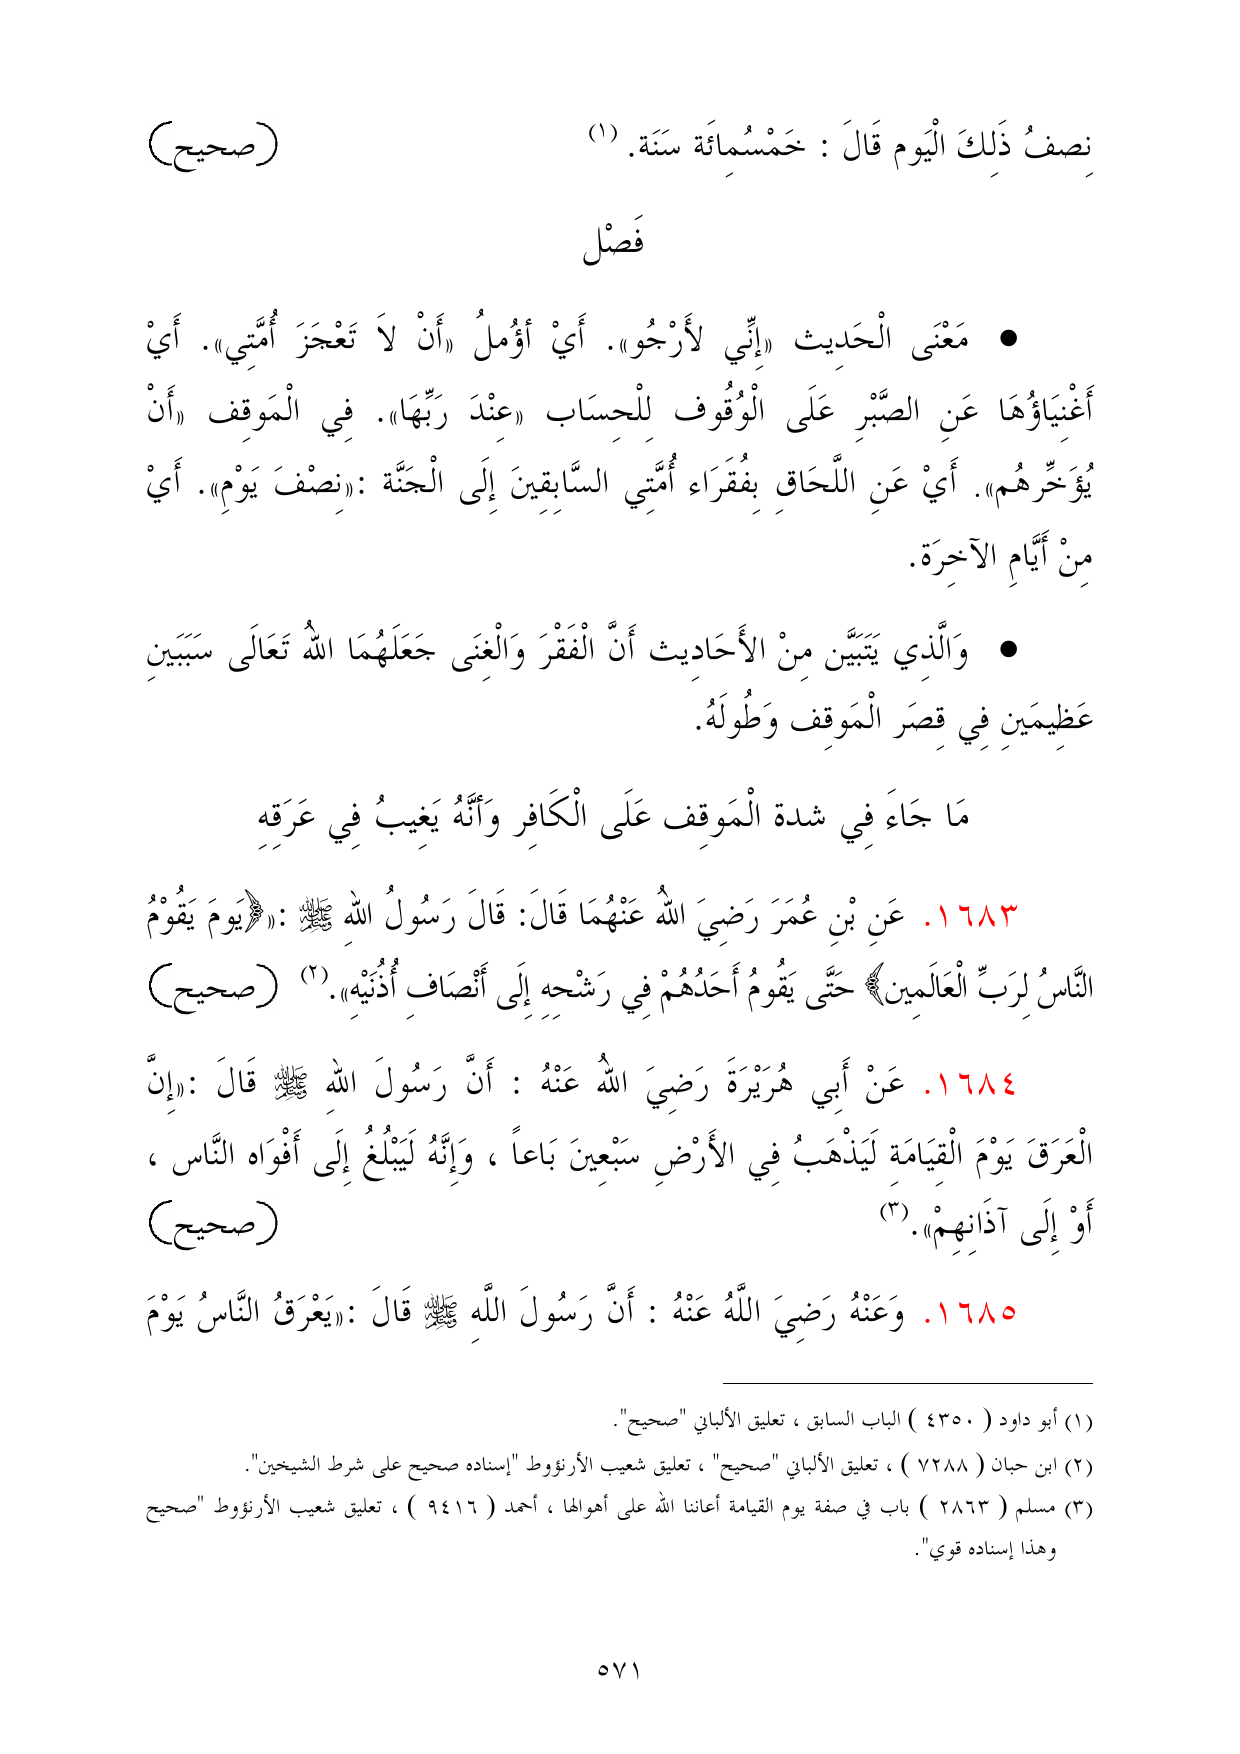 نِصفُ ذَلِكَ الْيَوم قَالَ : خَمْسُمِائَة سَنَة. (١) (صحيح)
فَصْل
● مَعْنَى الْحَدِيث «إِنِّي لأَرْجُو». أَيْ أؤُملُ «أَنْ لاَ تَعْجَزَ أُمَّتِي». أَيْ
أَغْنِيَاؤُهَا عَنِ الصَّبْرِ عَلَى الْوُقُوف لِلْحِسَاب «عِنْدَ رَبِّهَا». فِي الْمَوقِف «أَنْ
يُؤَخِّرهُم». أَيْ عَنِ اللَّحَاقِ بِفُقَرَاء أُمَّتِي السَّابِقِينَ إِلَى الْجَنَّة :«نِصْفَ يَوْمِ». أَيْ
مِنْ أَيَّامِ الآخِرَة.
● وَالَّذِي يَتَبَيَّن مِنْ الأَحَادِيث أَنَّ الْفَقْرَ وَالْغِنَى جَعَلَهُمَا اللهُ تَعَالَى سَبَبَينِ
عَظِيمَينِ فِي قِصَر الْمَوقِف وَطُولَهُ.
مَا جَاءَ فِي شدة الْمَوقِف عَلَى الْكَافِر وَأنَّهُ يَغِيبُ فِي عَرَقِهِ
١٦٨٣. عَنِ بْنِ عُمَرَ رَضِيَ اللهُ عَنْهُمَا قَالَ: قَالَ رَسُولُ اللهِ ﷺ :«﴿يَومَ يَقُوْمُ
النَّاسُ لِرَبِّ الْعَالَمِين﴾ حَتَّى يَقُومُ أَحَدُهُمْ فِي رَشْحِهِ إِلَى أَنْصَافِ أُذُنَيْهِ».(٢) (صحيح)
١٦٨٤. عَنْ أَبِي هُرَيْرَةَ رَضِيَ اللهُ عَنْهُ : أَنَّ رَسُولَ اللهِ ﷺ قَالَ :«إِنَّ
الْعَرَقَ يَوْمَ الْقِيَامَةِ لَيَذْهَبُ فِي الأَرْضِ سَبْعِينَ بَاعاً ، وَإِنَّهُ لَيَبْلُغُ إِلَى أَفْوَاه النَّاس ،
أَوْ إِلَى آذَانِهِمْ».(٣) (صحيح)
١٦٨٥. وَعَنْهُ رَضِيَ اللَّهُ عَنْهُ : أَنَّ رَسُولَ اللَّهِ ﷺ قَالَ :«يَعْرَقُ النَّاسُ يَوْمَ
(١) أبو داود ( ٤٣٥٠ ) الباب السابق ، تعليق الألباني "صحيح".
(٢) ابن حبان ( ٧٢٨٨ ) ، تعليق الألباني "صحيح" ، تعليق شعيب الأرنؤوط "إسناده صحيح على شرط الشيخين".
(٣) مسلم ( ٢٨٦٣ ) باب في صفة يوم القيامة أعاننا الله على أهوالها ، أحمد ( ٩٤١٦ ) ، تعليق شعيب الأرنؤوط "صحيح
وهذا إسناده قوي".
٥٧١